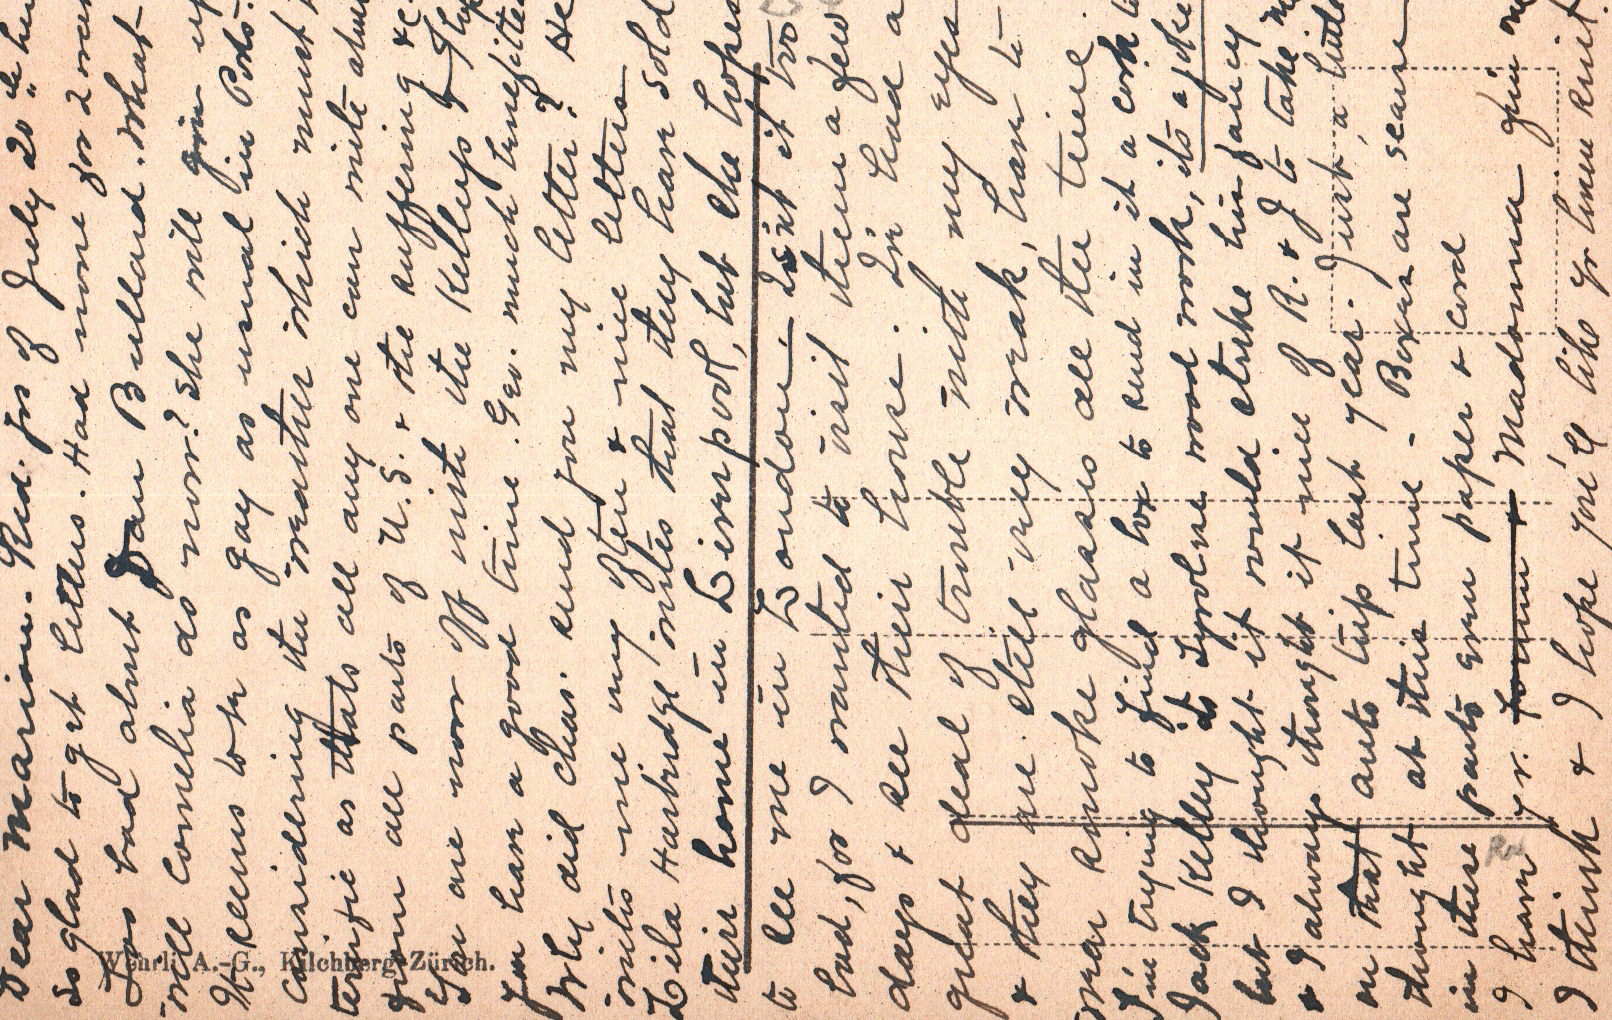 Dear Marion. Rec'd. yrs of July 20th
So glad to get letters. Had none for 2 mos
Too bad about Dan Bullard. What
will Cornelia do now? She will give up
It seems to be as gay as usual in Ports.
considering the weather which must
terrific as thats all any one can write
from all parts of U.S. & the suffering &c.
You are now off with the Kelleys &
you have a good time. Geo. much benefitted
Why did Chas. send you my letter? He
writes me very often & nice letters
Lila Harbidge writes that they have sold
their home in Liverpool, but she hopes
to see me in London. Isn't it too
bad, for I wanted to visit them a few
days & see their house. I've had a
great deal of trouble with my eyes
& they are still very weak, have to
wear smoke glasses all the time.
I'm trying to find a box to send in it a cork
Jack Kelley its Tyrolene wood work, its a joke
but I thought it would strike his fancy
& I always thought it nice of R. & J to take me
on that auto trip last year. Just a little
thought at this time - Boxes are scarce
in these parts even paper & cord
I have yr. Madonna
I think & I hope you'll like yr linen suit.
Wehrli A.-G., Kilchberg-Zürich.